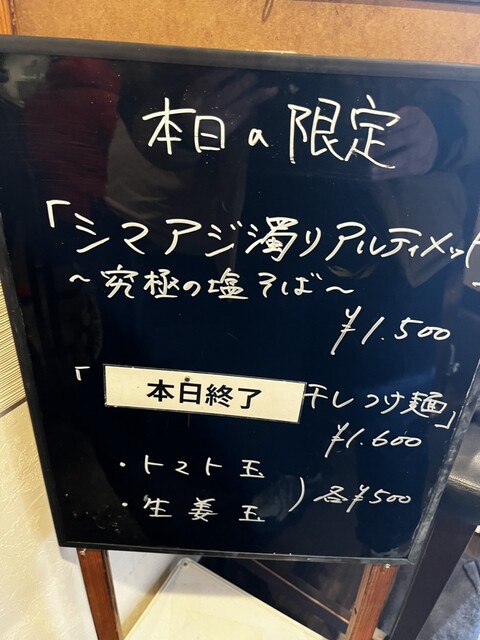 本日の限定
「シマアジ濁りアルティメット
～究極の塩そば～
¥1.500
「 本日終了 干しつけ麺」
¥1.600
・トマト玉
・生姜玉 ) 各¥500